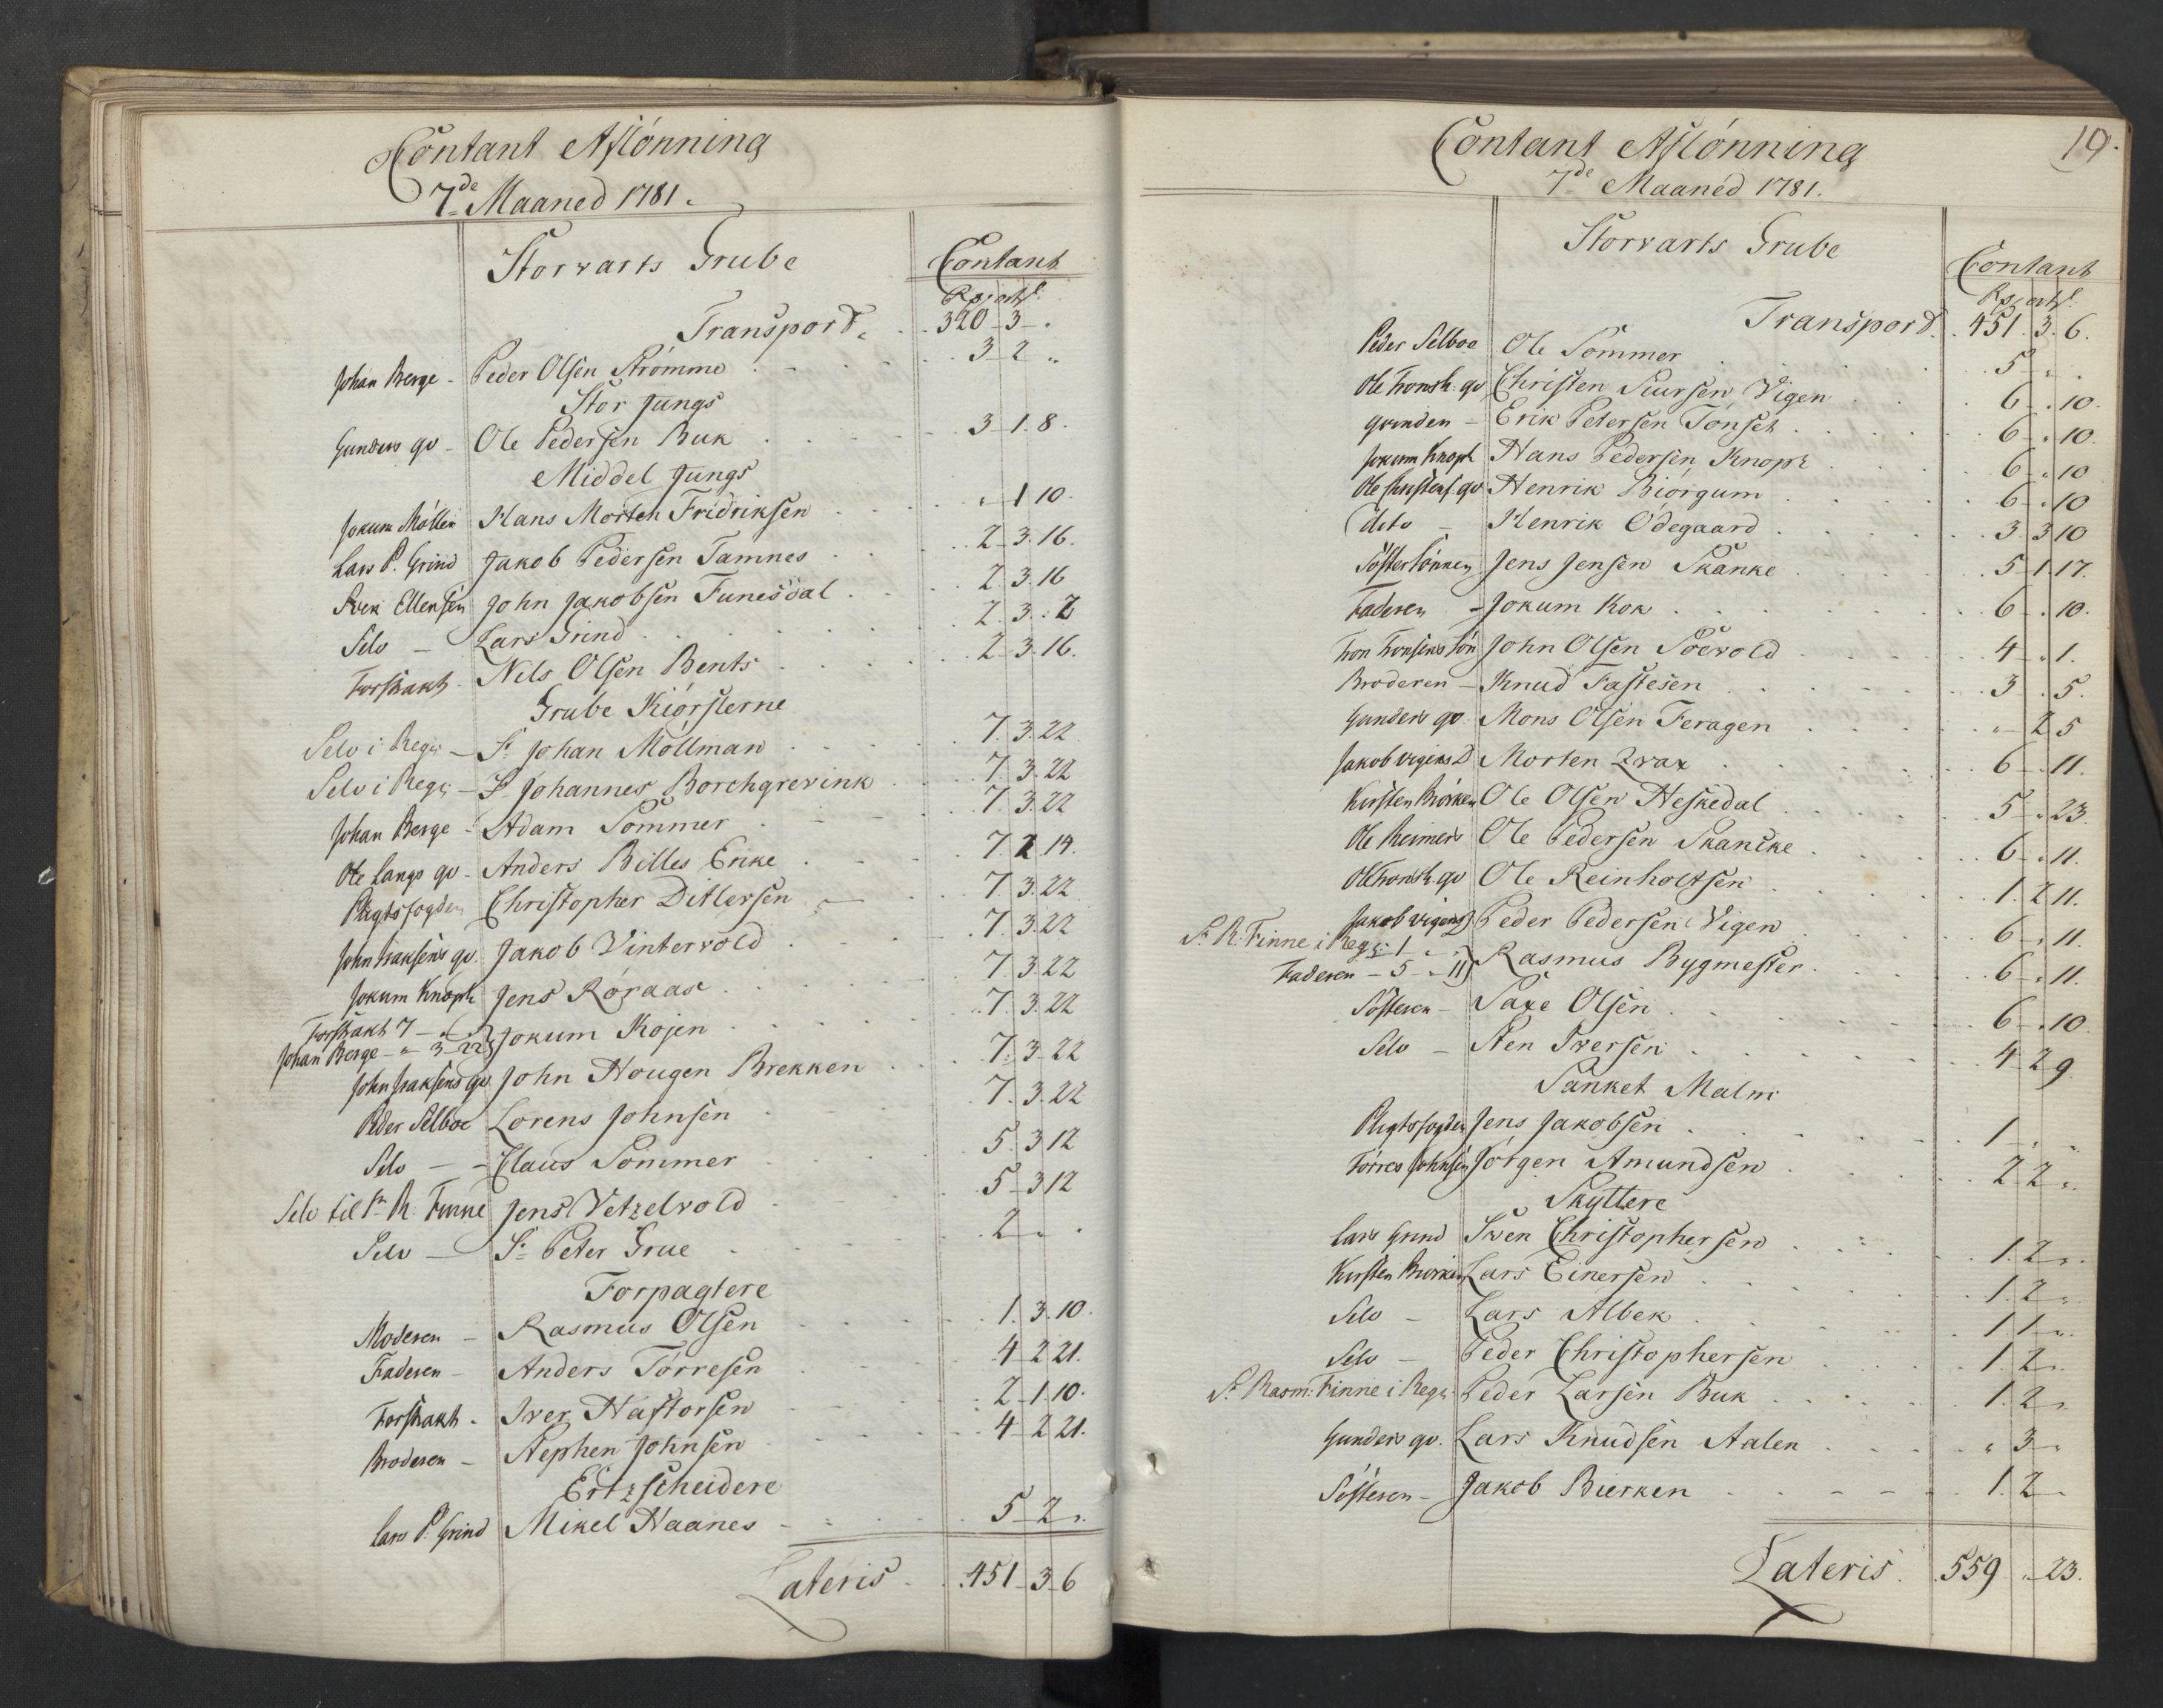 Contant Aflónning
7de Maaned 1781.
Storvarts Grube
Contant
Rp ort s.
Transport. 320 3 "
Johan Berge - Peder Olsen Strømme 3 2 "
Stor Jungs
Gunders qv - Ole Pedersen Buk 3 1 8.
Middel Jungs
Jokum Møllen Hans Morten Fridriksen " 1 10.
Lars P. Grind Jakob Pedersen Tamnes 2 3 16.
Sven Ellensen John Jakobsen Funesdal 2 3 16
Selv - Lars Grind 2 3 2
Forstrakt - Nils Olsen Bents 2 3 16.
Grube Kiórslerne
Selv i Regn: - Sr Johan Möllman 7. 3. 22
Selv i Regn: - Sr Johannes Borchgrevink 7. 3. 22
Johan Berge - Adam Sommer 7. 3. 22
Ole Langs qv - Anders Billes Enke 7 2 14.
Pligtsfogden Christopher Ditlersen 7 3. 22
John Isaksens qv. Jakob Vintervold 7. 3. 22
Jokum Knoph Jens Róraas 7. 3. 22
Forstrakt 7 - " - "
Johan Berge - " 3 - 22 } Jokum Kojen 7. 3. 22
John Isaksens qv John Hougen Brekken 7. 3. 22
Peder Selboe Lorens Johnsen 7. 3. 22
Selv - - Claus Sommer 5. 3 12
Selv til Sr R. Finne Jens Vetzelvold 5 - 3 12
Selv - Sr Peter Grue 2 - "
Forpagtere
Moderen - Rasmus Olsen 1. 3. 10.
Faderen - Anders Torresen 4 2 21.
Forstrakt - Iver Haftorsen 2 - 1. 10.
Broderen - Stephen Johnsen 4 - 2 21.
Ertzscheidere
Lars P. Grind Mikel Haanes 5 - 2 ".
Lateris 451 - 3 - 6
19.
Contant Aflónning
7de Maaned 1781.
Storvarts Grube
Contant
Rp ort s.
Transport. 451. 3. 6.
Peder Selboe Ole Sommer 5 "
Ole Tronsk. qv Christen Siursen Vigen 6 - " 10.
qvinden - Erik Petersen Tónset 6 - " 10.
Jokum Knoph Hans Pedersen Knoph 6 " 10
Ole Christens. qv Henrik Biórgum 6 - " 10
dito - Henrik Ódegaard 3. 3 10
Sóstersónnen Jens Jensen Skanke 5 1 17.
Faderen - Jokum Kok 6 - " 10.
Tron Tronsens Són John Olsen Soevold 4 - " 1.
Broderen - Knud Fastesen 3 " 5.
Gunders qv. Mons Olsen Feragen " - 2 5
Jakob Vigens D Morten Qvax 6 - " 11.
Kirsten Biórken Ole Olsen Heskedal 5 - " 23.
Ole Reimers Ole Pedersen Skancke 6 - " 11.
Ole Tronsk. qv Ole Reinholtsen 1. 2 11.
Jakob Vigens D Peder Pedersen Vigen 6 - " 11.
Sr R. Finne i Regn: 1 " "
Faderen - 5 " 11 } Rasmus Bygmester 6 - " 11.
Sósteren - Saxe Olsen 6 - " 10
Selv - Sten Iversen 4 - 2 9
Sanket Malm
Pligtsfogden Jens Jakobsen 1 - " "
Torres Johnsen Jórgen Amundsen 2 2 "
Skyttere
Lars Grind Sven Christophersen 1. 2 ".
Kirsten Biórken Lars Einersen 1. 2 "
Selv - Lars Albek 1 1 ".
Selv - Peder Christophersen 1. 2 "
Sr Rasm: Finne i Regn: Peder Larsen Buk 1. 2 "
Gunders qv. Lars Knudsen Aalen " 3 "
Sósteren - Jakob Bierken 1. 2 "
Lateris. 559 " 23.